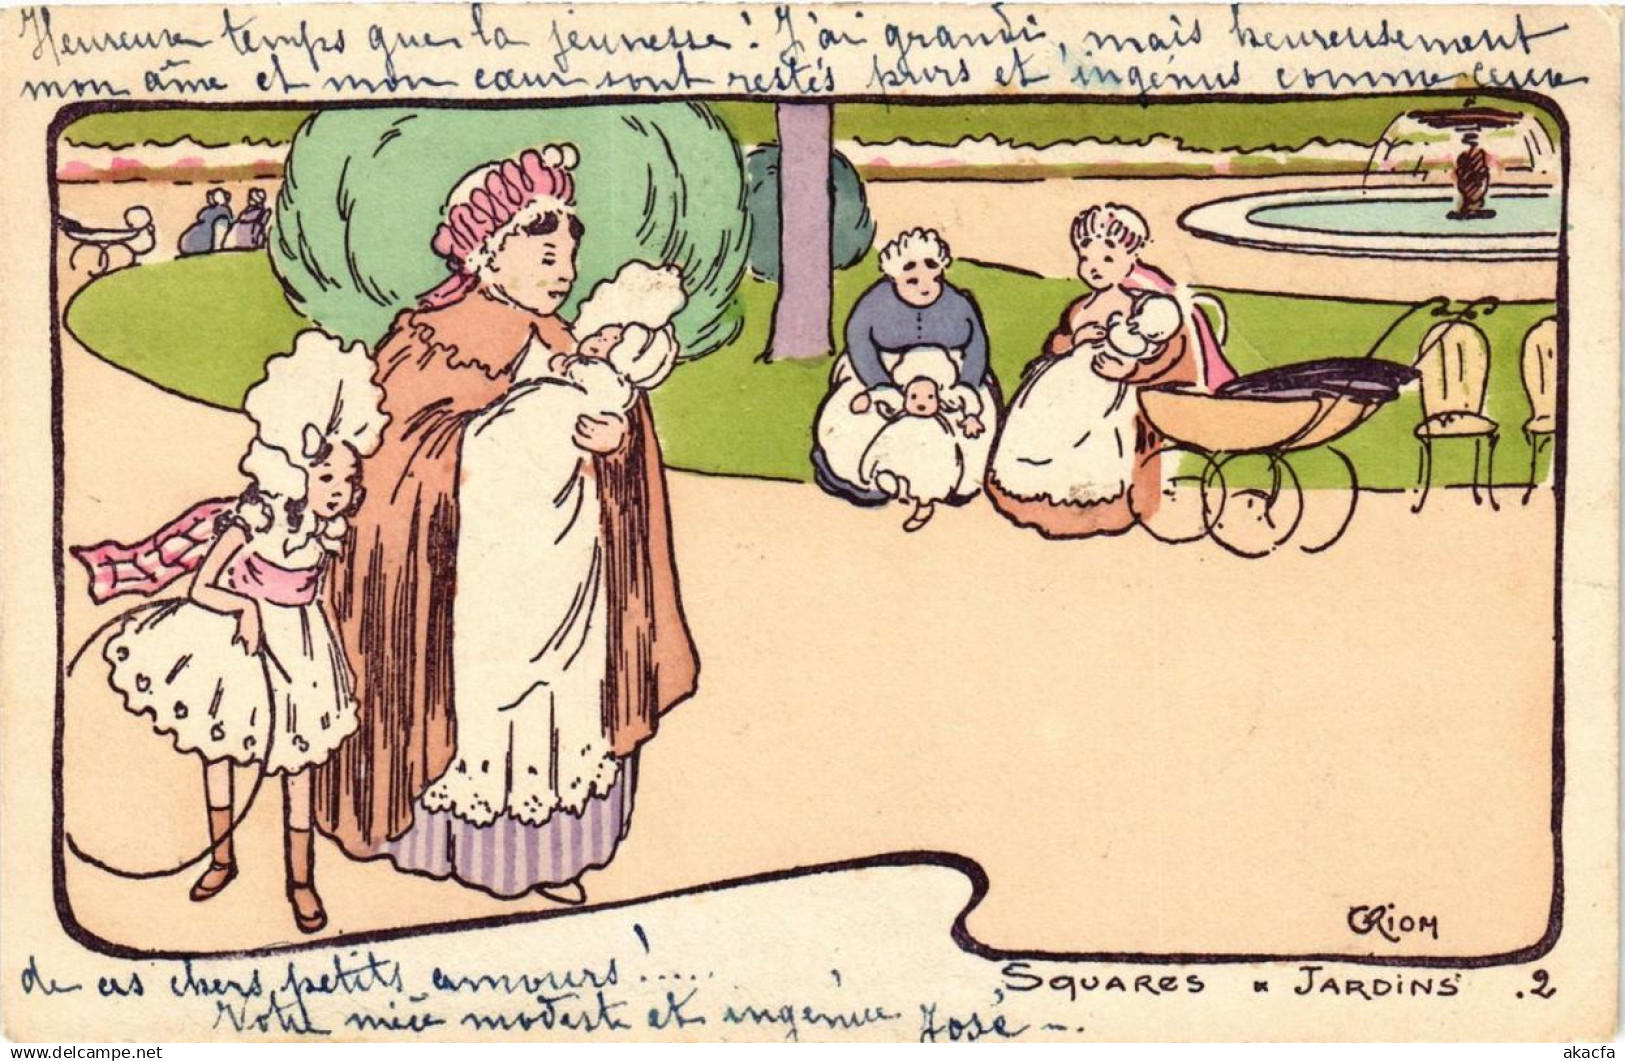 Heureux temps que la jeunesse! J'ai grandi, mais heureusement
mon âme et mon cœur sont restés purs et ingénus comme ceux
CRIOM
de ces chers petits amours!.....
SQUARES & JARDINS .2
Votre nièce modeste et ingénue José
akacfa